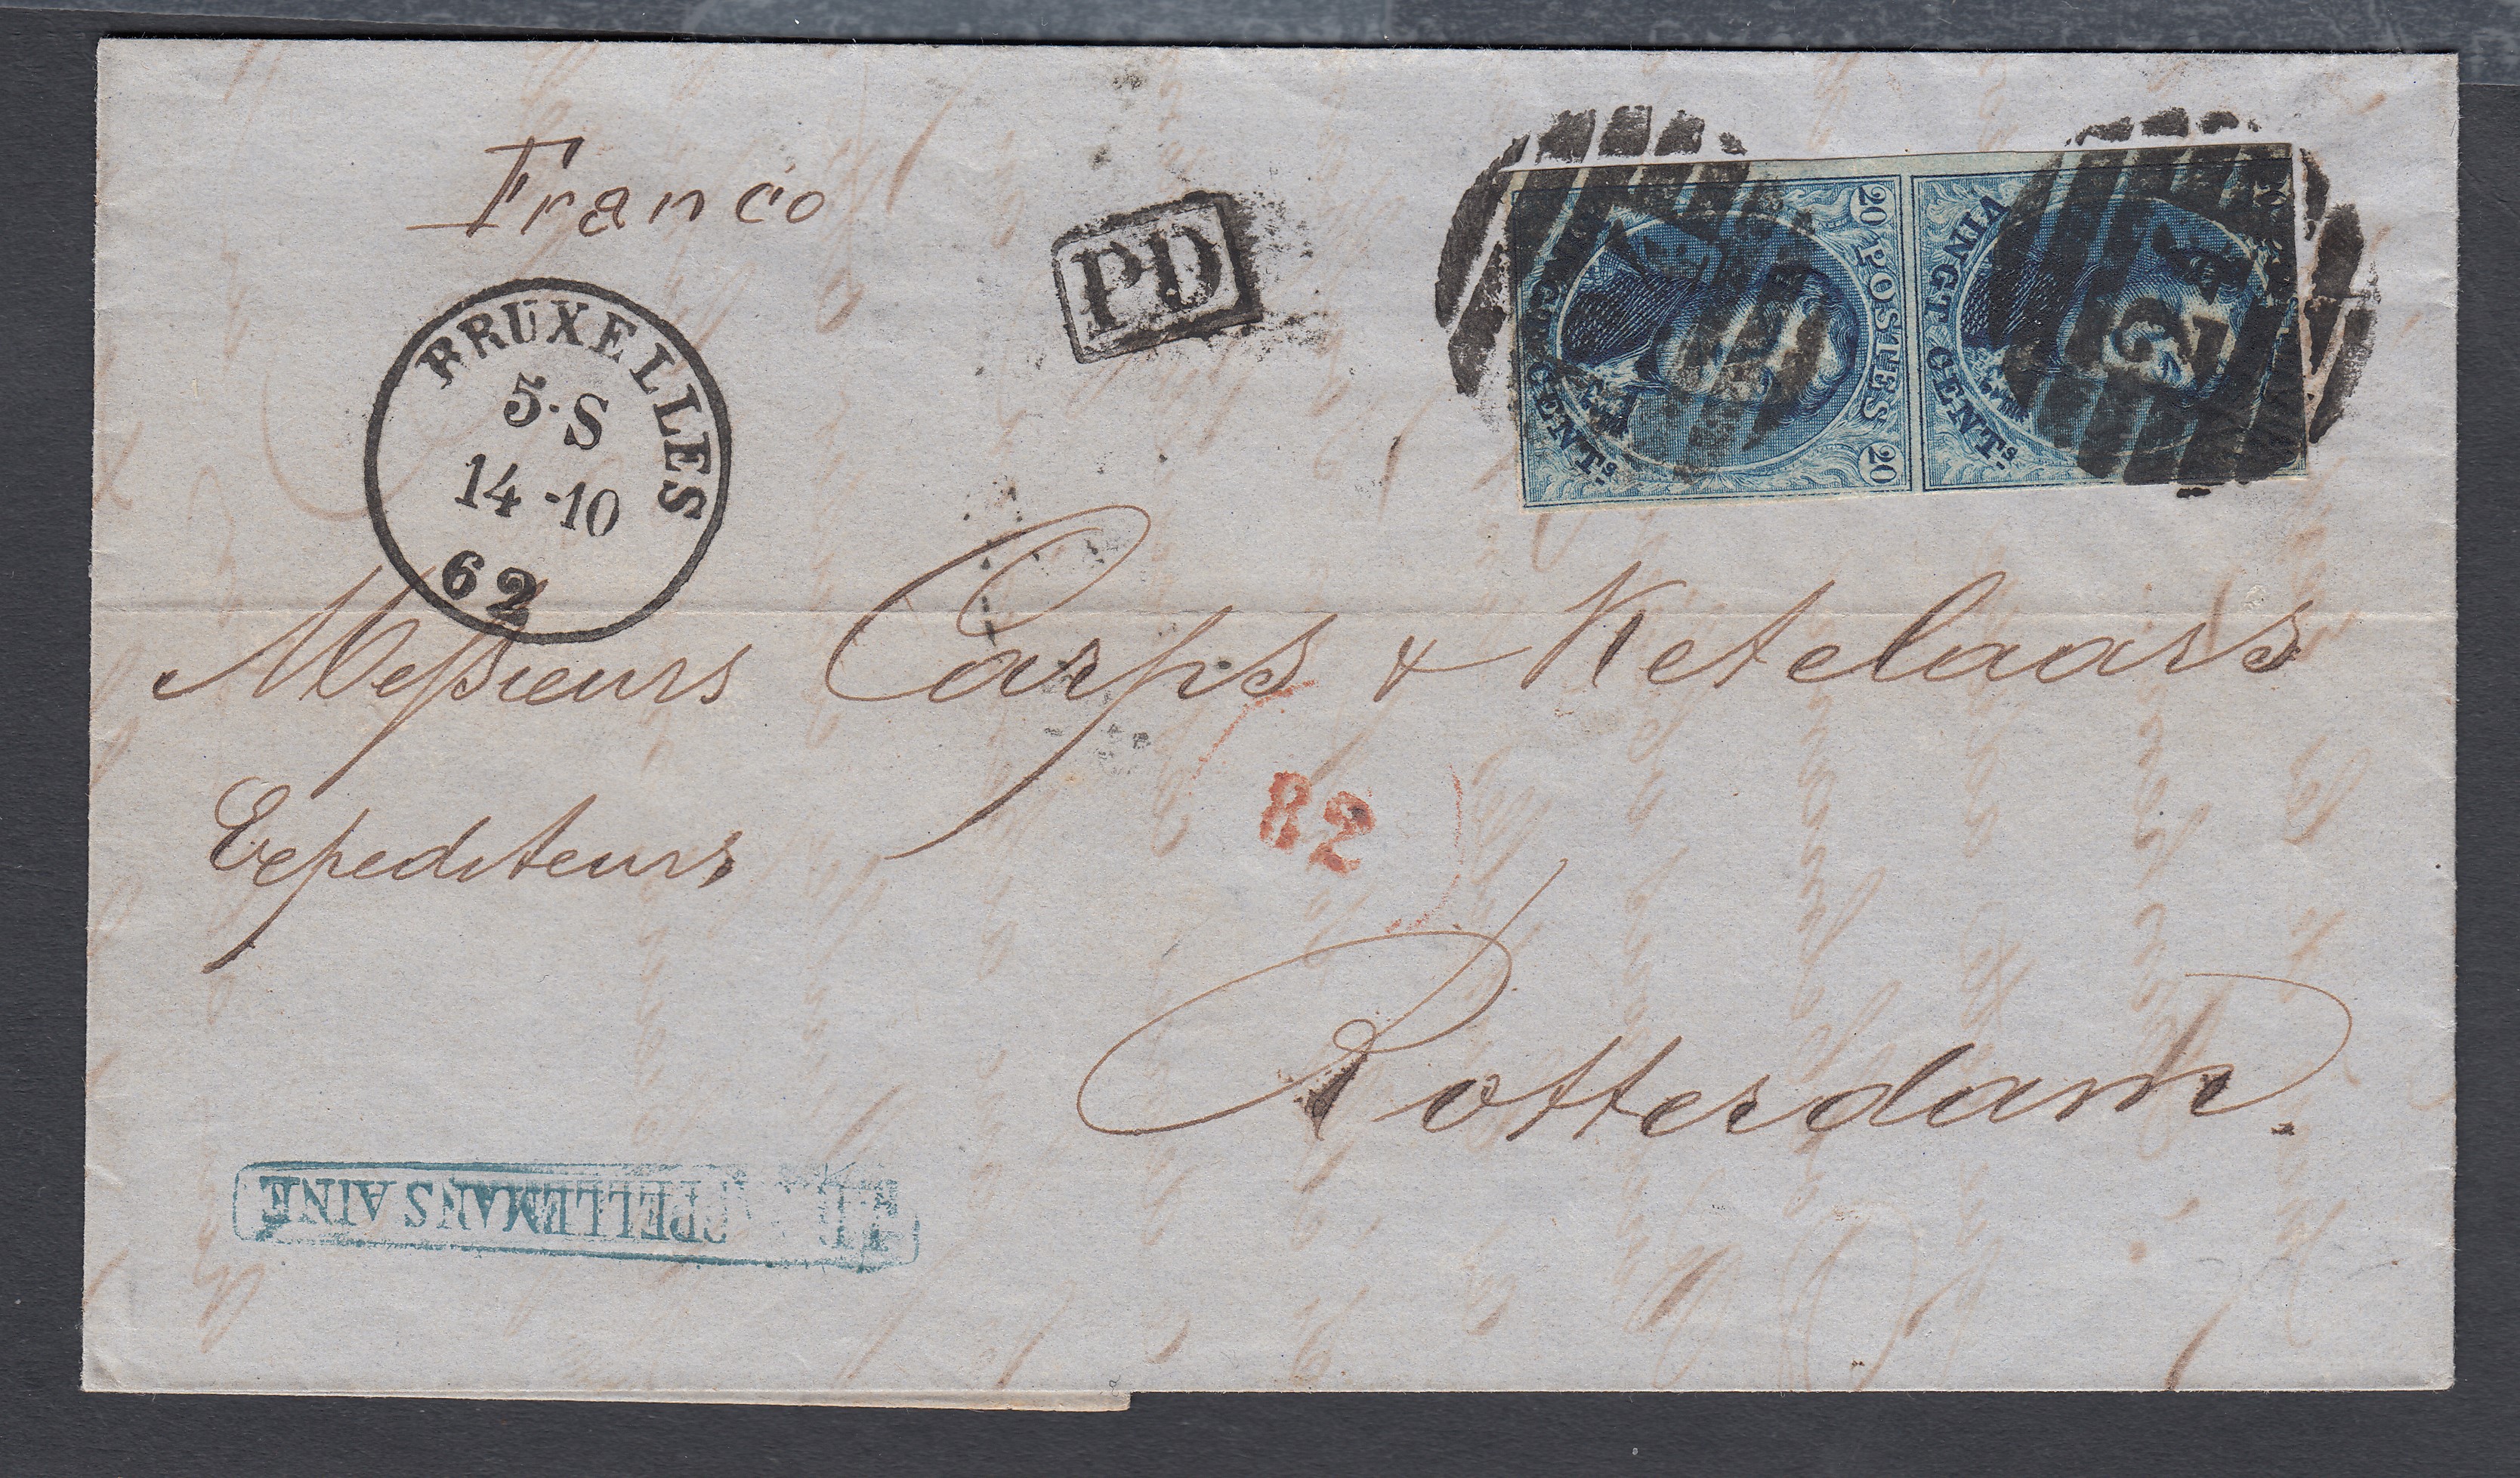 Franco
P.D
BRUXELLES
5·S
14-10
62
20 POSTES 20
VINGT CENTS
VINGT CENTS
24
Messieurs Carps & Ketelaars
Expediteurs
82
Rotterdam.
PELLEMANS AINE